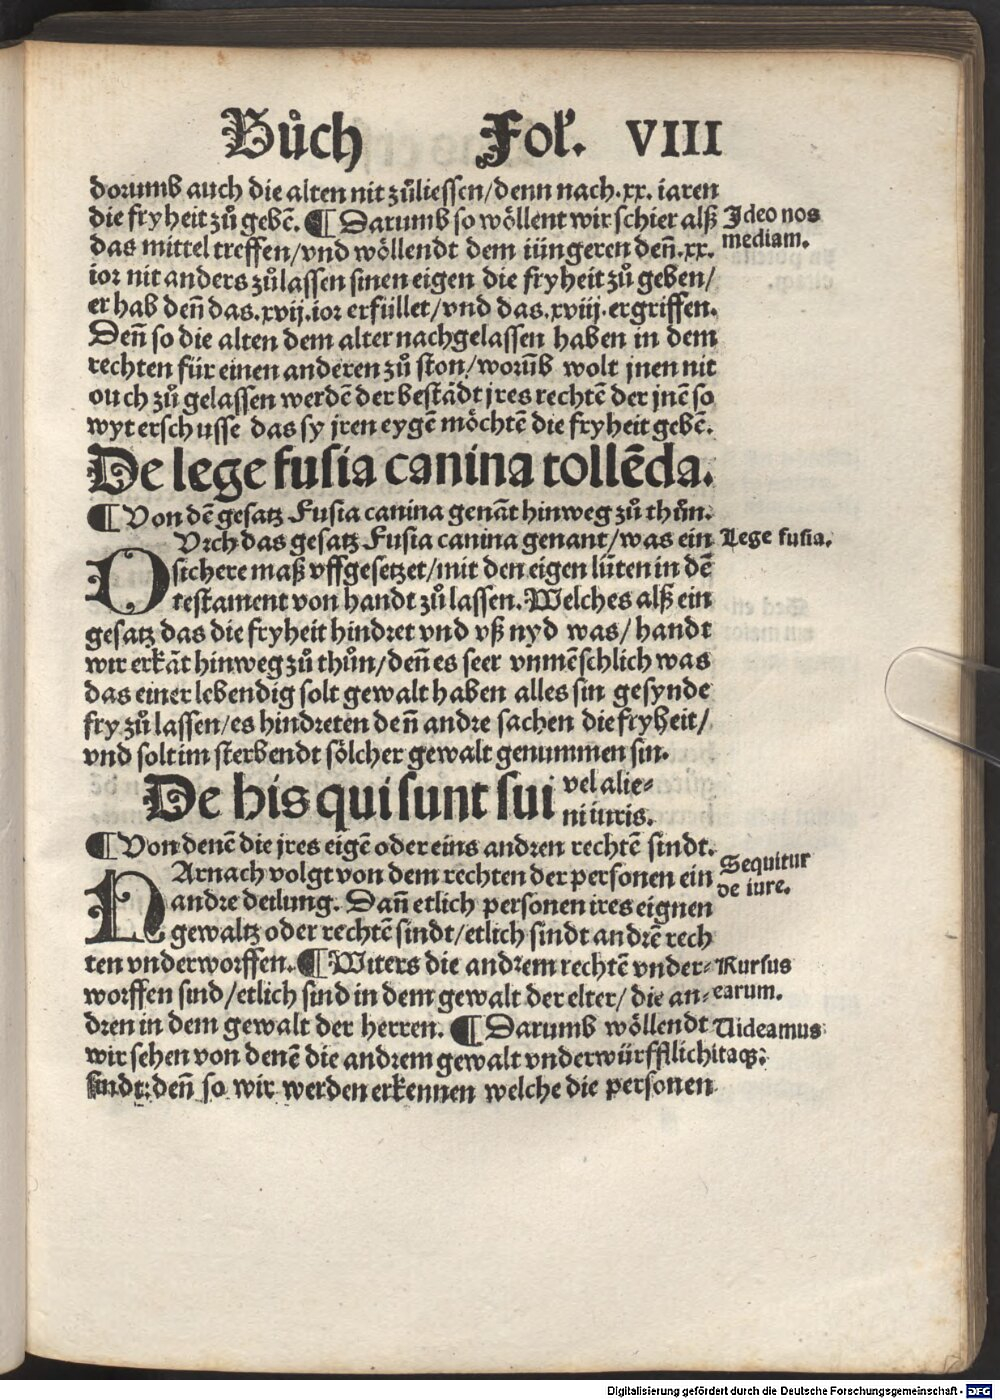 Bůch Fol'. VIII
dorumb auch die alten nit zůliessen/denn nach.xx. iaren
die fryheit zů gebē. ¶ Darumb so wöllent wir schier alß
Ideo nos
das mittel treffen/vnd wöllendt dem iüngeren deñ.xx.
mediam.
ior nit anders zůlassen sinen eigen die fryheit zů geben/
er hab deñ das.xvij.ior erfüllet/vnd das.xviij.ergriffen.
Deñ so die alten dem alter nachgelassen haben in dem
rechten für einen anderen zů ston/worūb wolt jnen nit
ouch zů gelassen werdē der bestādt jres rechtē der jnē so
wyt erschusse das sy jren eygē möchtē die fryheit gebē.
De lege fusia canina tollēda.
¶ Von dē gesatz Fusia canina genāt hinweg zů thůn.
DVrch das gesatz Fusia canina genant/was ein
Lege fusia.
sichere maß vffgesetzet/mit den eigen lüten in dē
testament von handt zů lassen. Welches alß ein
gesatz das die fryheit hindret vnd vß nyd was/handt
wir erkāt hinweg zů thůn/deñ es seer vnmēschlich was
das einer lebendig solt gewalt haben alles sin gesynde
fry zů lassen/es hindreten deñ andre sachen die fryheit/
vnd solt im sterbendt sölcher gewalt genummen sin.
De his qui sunt sui vel alie-
ni iuris.
¶ Von denē die jres eigē oder eins andren rechtē sindt.
DArnach volgt von dem rechten der personen ein
Sequitur
andre deilung. Dañ etlich personen ires eignen
de iure.
gewaltz oder rechtē sindt/etlich sindt andrē rech
ten vnderworffen. ¶ Witers die andrem rechtē vnder-
Rursus
worffen sind/etlich sind in dem gewalt der elter/die an-
earum.
dren in dem gewalt der herren. ¶ Darumb wöllendt
Uideamus
wir sehen von denē die andrem gewalt vnderwürfflich
itaqꝫ.
sindt: deñ so wir werden erkennen welche die personen
Digitalisierung gefördert durch die Deutsche Forschungsgemeinschaft - DFG